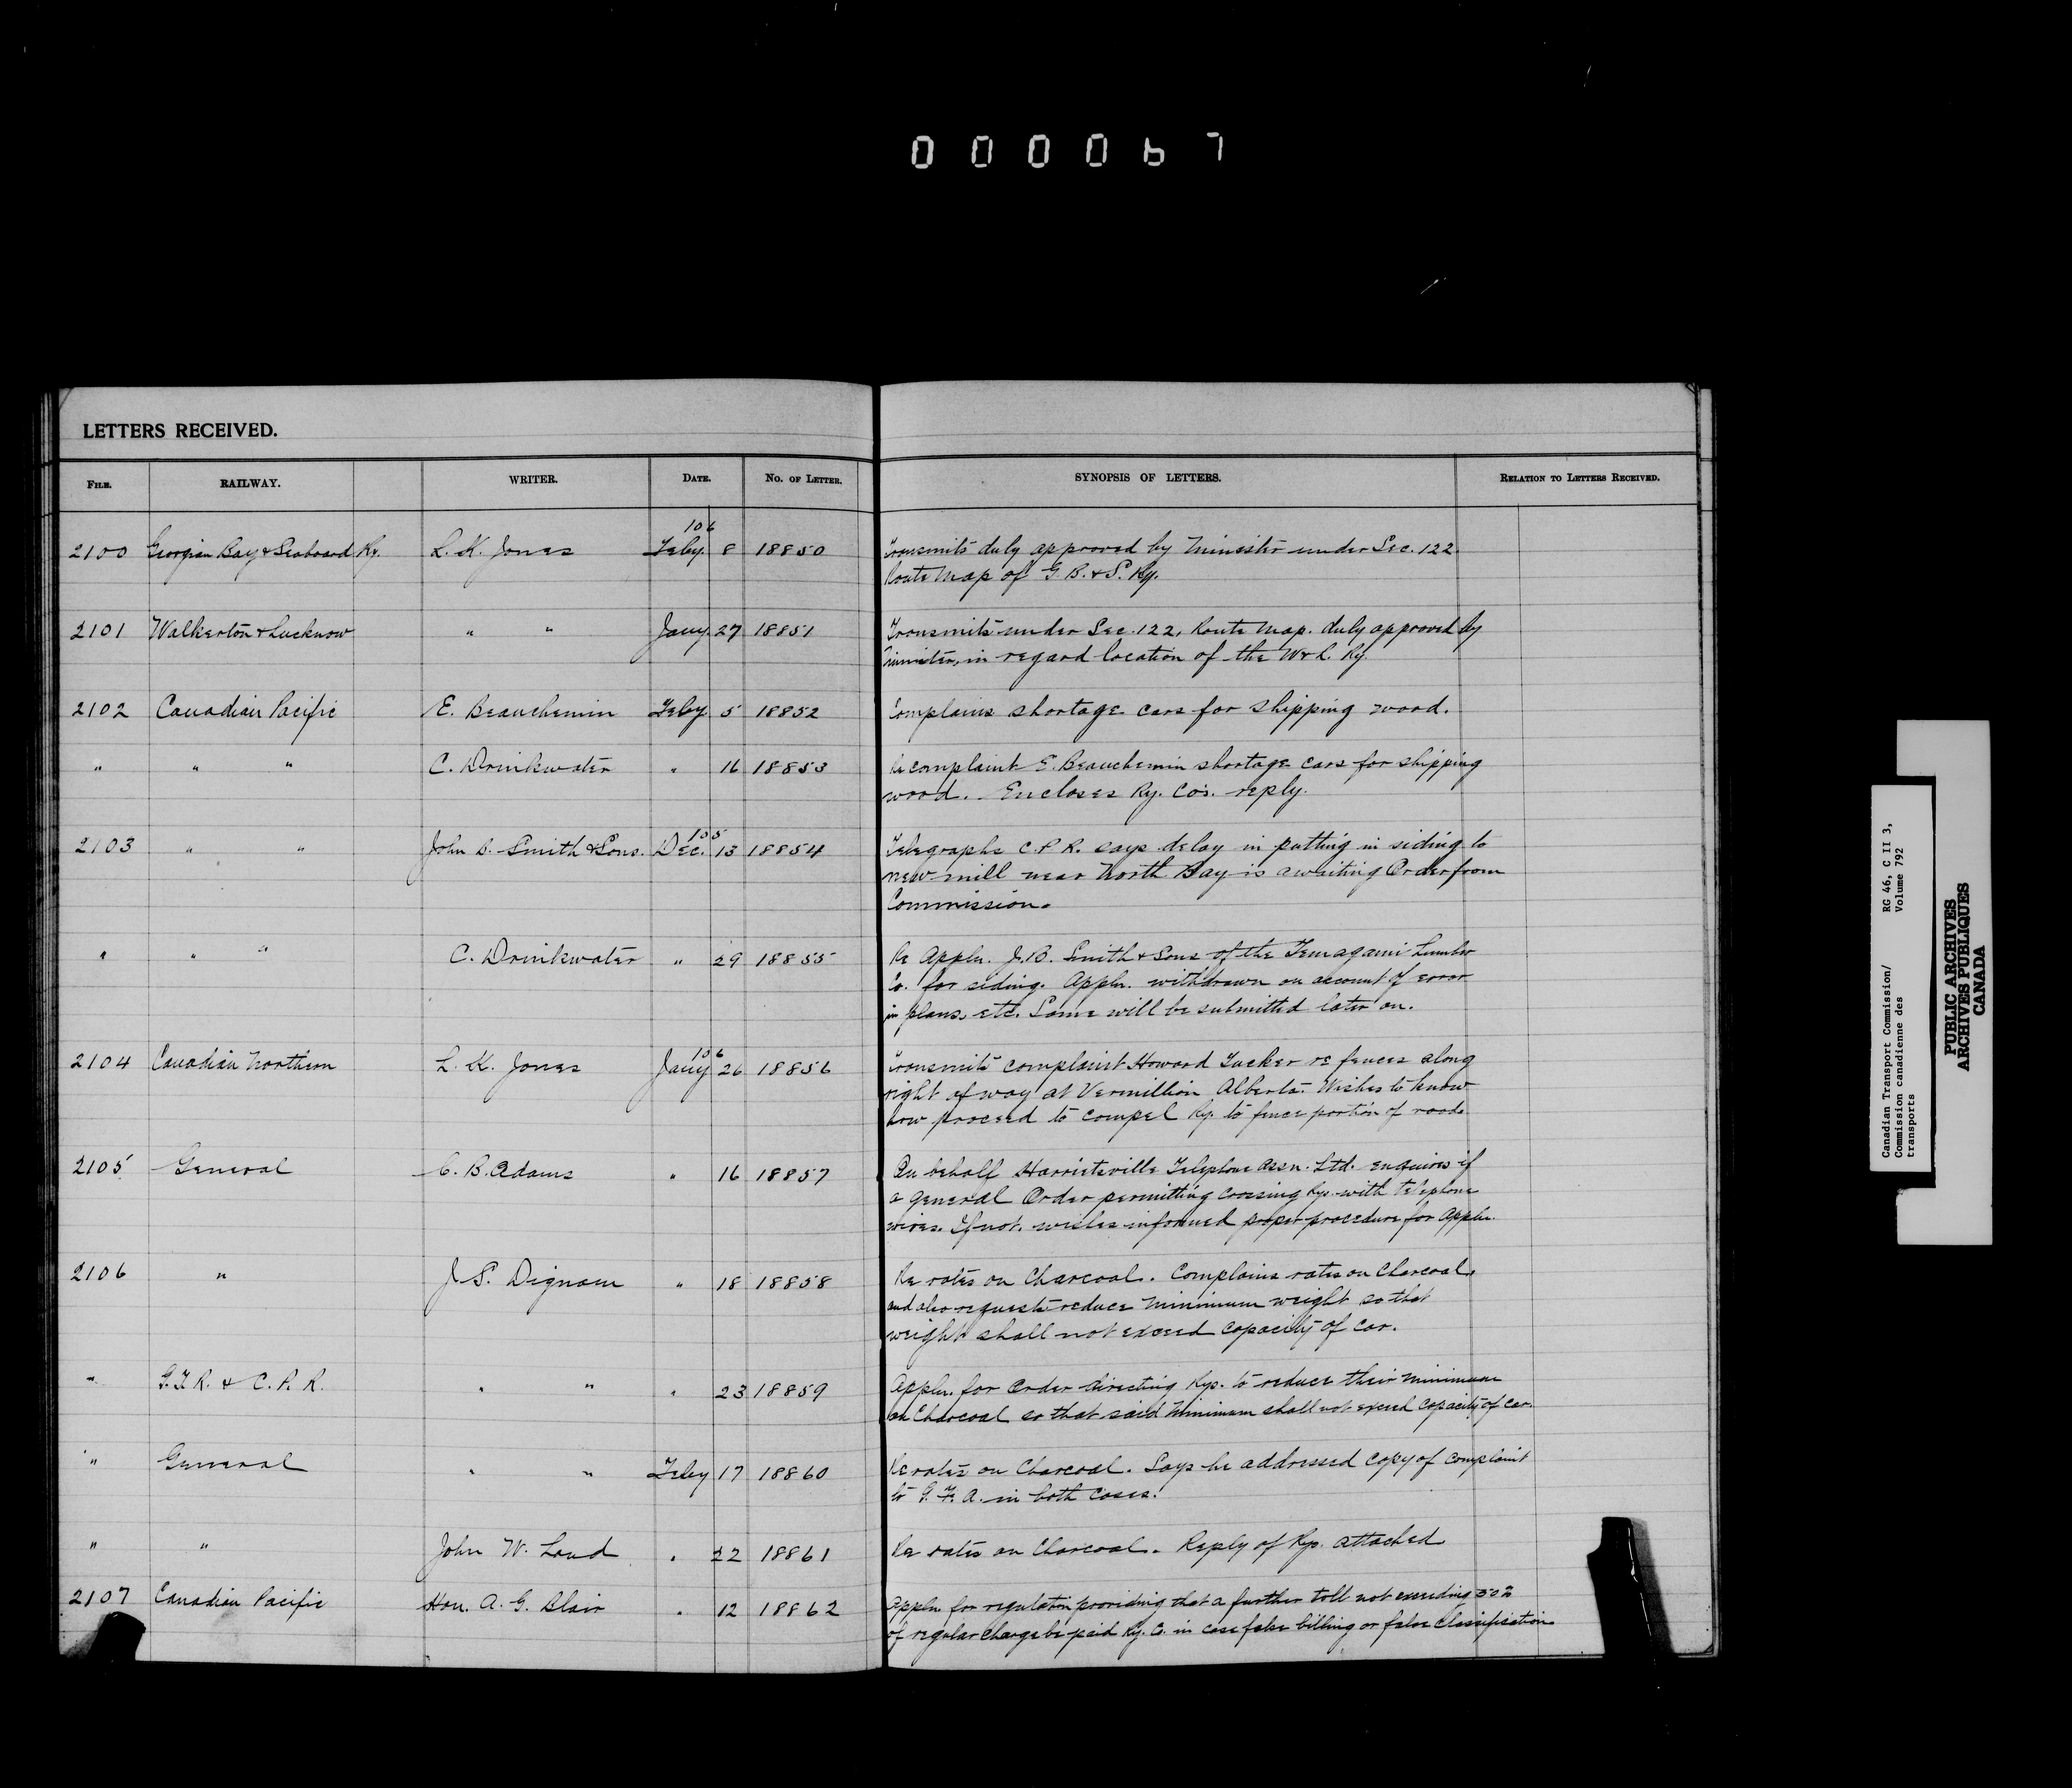 000067
LETTERS RECEIVED.
FILE. RAILWAY. WRITER. DATE. NO. OF LETTER. SYNOPSIS OF LETTERS. RELATION TO LETTERS RECEIVED.
106
2100 Georgian Bay & Seaboard Ry. L. K. Jones Feby. 8 18850 Transmits duly approved by Minister under Sec. 122.
Route Map of G. B. & S. Ry.
2101 Walkerton & Lucknow " " Jany. 27 18851 Transmits under Sec. 122, Route Map. duly approved by
Minister, in regard location of the W & L. Ry.
2102 Canadian Pacific E. Beauchemin Feby. 5 18852 Complains shortage cars for shipping wood.
" " " C. Drinkwater " 16 18853 Re complaint E. Beauchemin shortage cars for shipping
wood. Encloses Ry. Co's. reply.
105
2103 " " John B. Smith & Sons. Dec. 13 18854 Telegraphs C.P.R. says delay in putting in siding to
new mill near North Bay is awaiting Order from
Commission.
" " " C. Drinkwater " 29 18855 Re Appln. J.B. Smith & Sons of the Temagami Lumber
Co. for siding. Appln. withdrawn on account of error
in plans, etc. Same will be submitted later on.
106
2104 Canadian Northern L. K. Jones Jany 26 18856 Transmits complaint Howard Tucker re fences along
right of way at Vermillion Alberta. Wishes to know
how proceed to compel Ry. to fence portion of road.
2105 General C. B. Adams " 16 18857 On behalf Harrietsville Telephone Assn. Ltd. enquires if
a general Order permitting crossing Rys. with telephone
wires. If not, wishes informed proper procedure for Appln.
2106 " J. S. Dignam " 18 18858 Re rates on Charcoal. Complains rates on Charcoal,
and also requests reduce Minimum weight so that
weight shall not exceed capacity of car.
" G.T.R. & C.P.R. " " " 23 18859 Appln. for Order directing Rys. to reduce their Minimum
on Charcoal so that said Minimum shall not exceed capacity of car.
" General " " Feby 17 18860 Re rates on Charcoal. Says he addressed copy of complaint
to G. F. A. in both cases.
" " John W. Loud " 22 18861 Re rates on Charcoal. Reply of Rys. attached
2107 Canadian Pacific Hon. A. G. Blair " 12 18862 Appln. for regulation providing that a further toll not exceeding 50%
of regular charge be paid Ry. Co. in case false billing or false Classification
Canadian Transport Commission/ RG 46, C II 3,
Commission canadienne des Volume 792
transports
PUBLIC ARCHIVES
ARCHIVES PUBLIQUES
CANADA